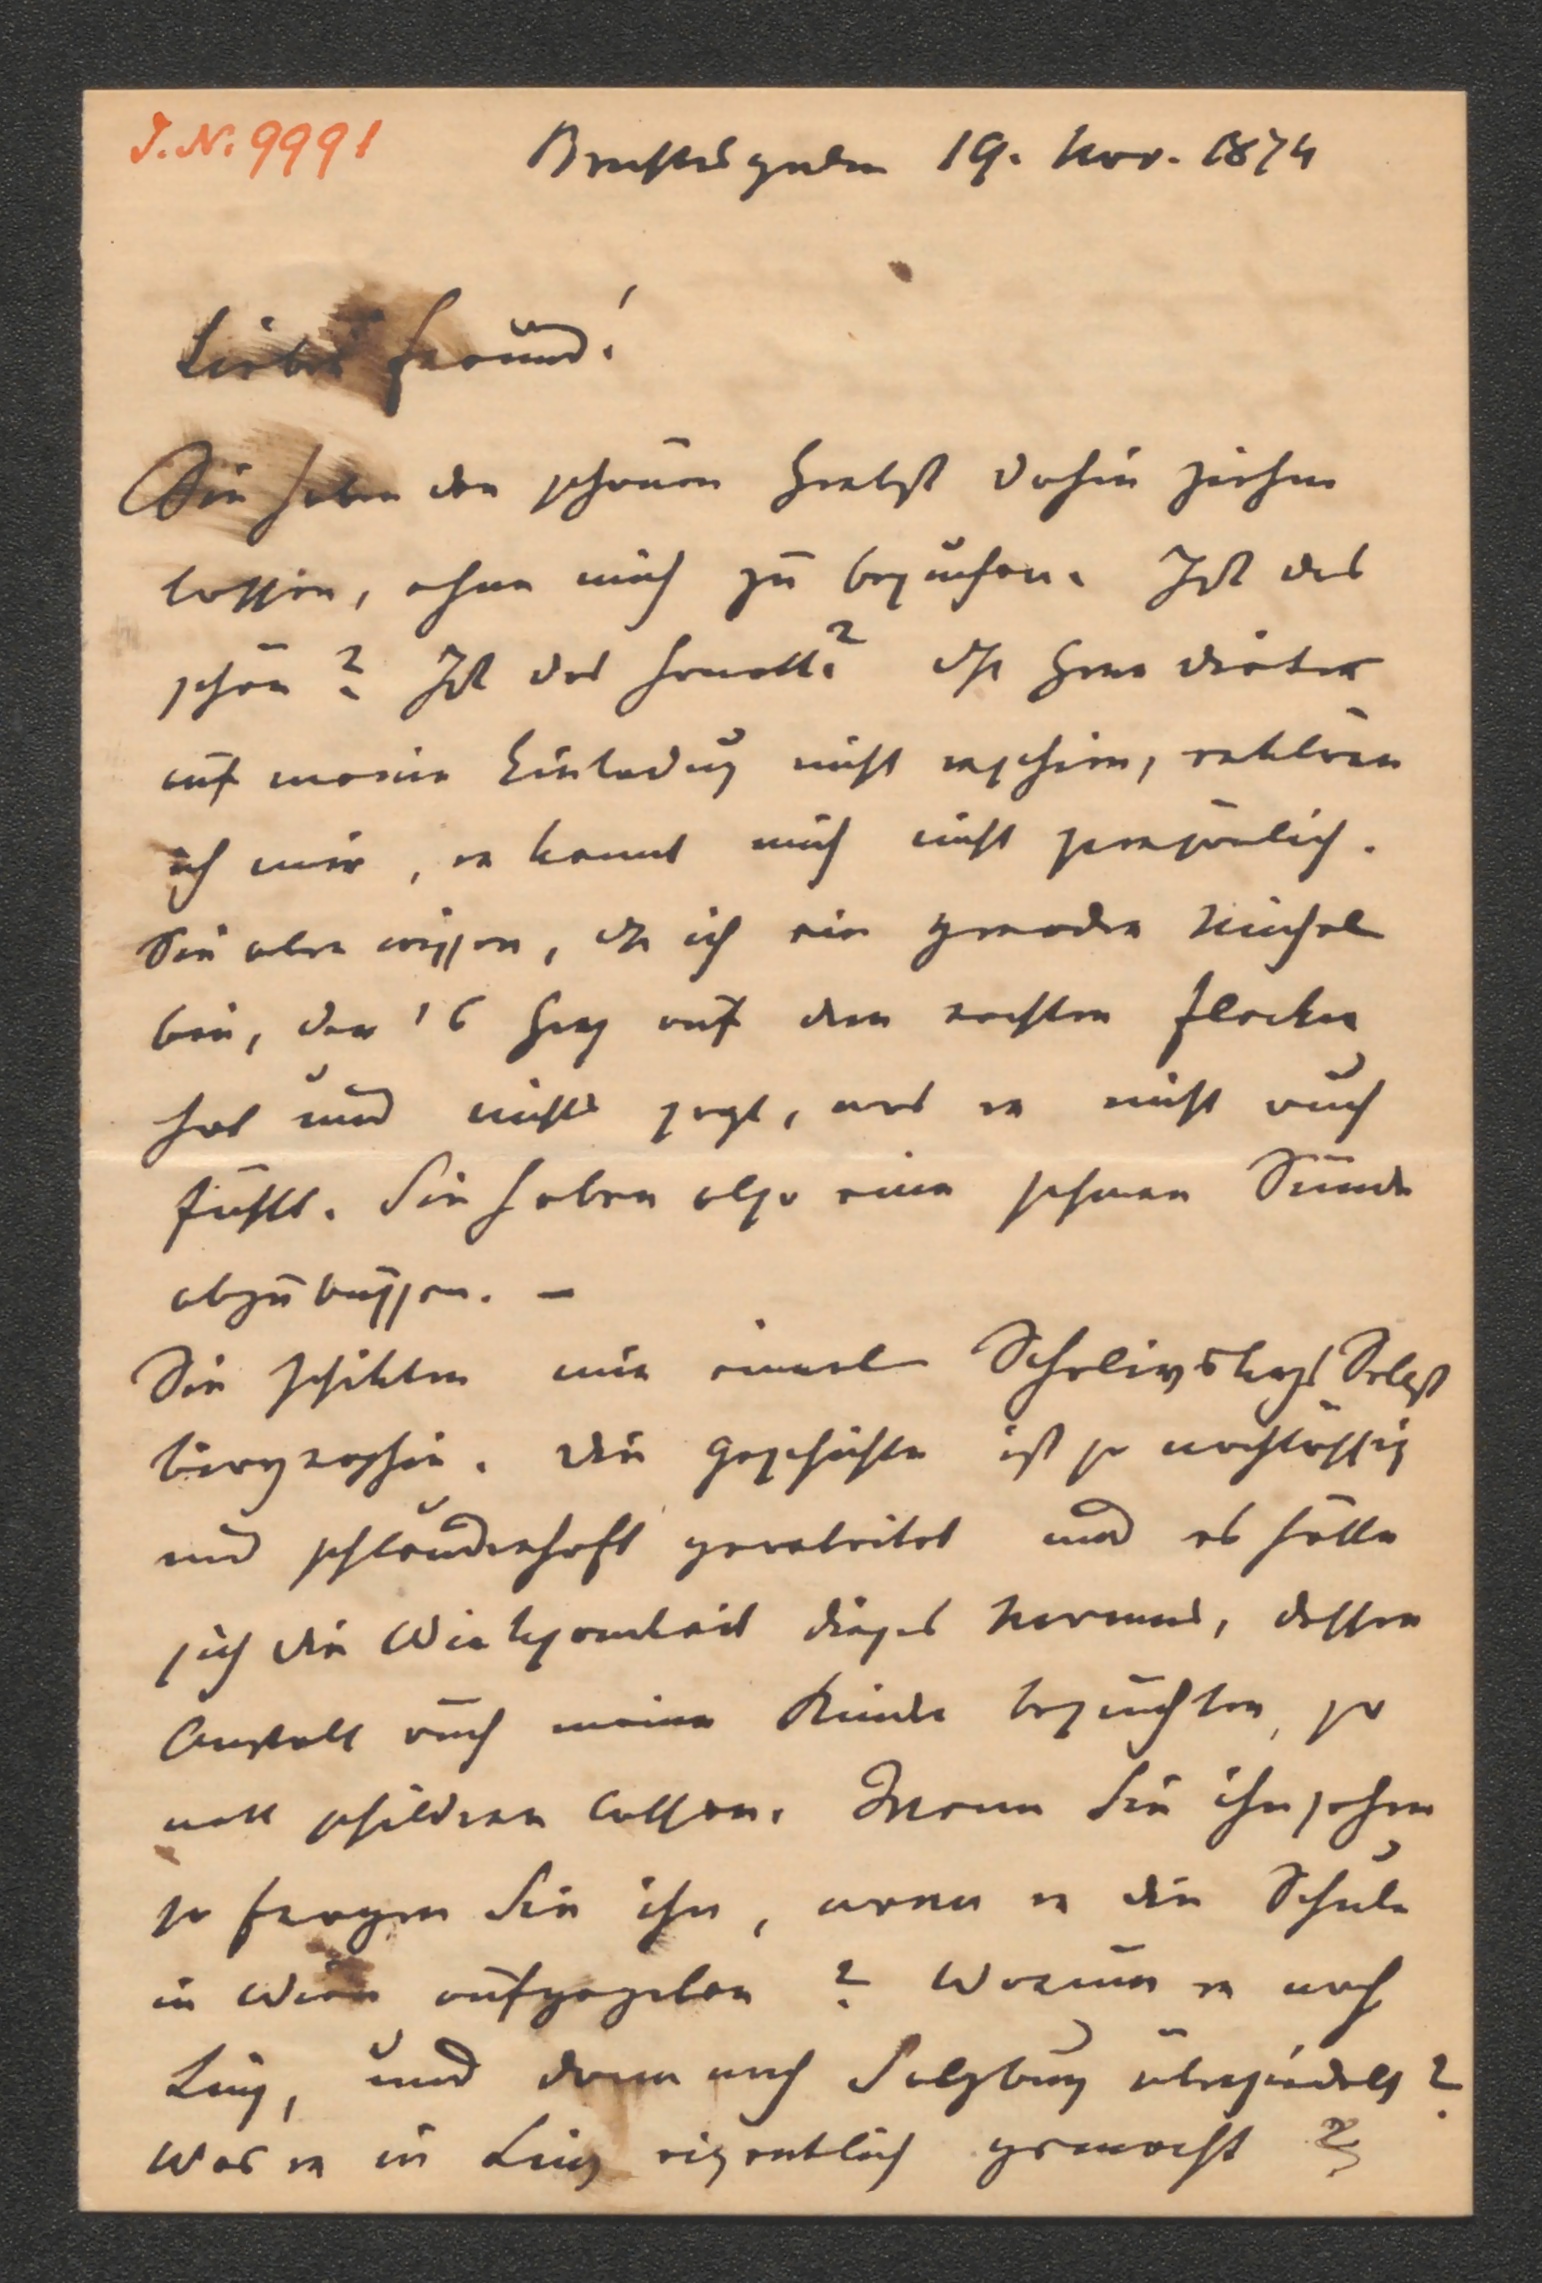 I. N. 9991
Berchtesgaden 19. Nov. 1874
Lieber Freund!
Sie haben den schönen Herbst dahin ziehen
lassen, ohne mich zu besuchen. Ist das
schön? Ist das honett? Dß Herr
auf meine Einladung nicht erschien, erkläre
ich mir, er kennt mich nicht persönlich.
Sie aber wissen, dß ich ein grader Michel
bin, der 's Herz auf dem rechten Flecken
hat und nichts sagt, was er nicht auch
fühlt. Sie haben also eine schwere Sünde
abzubüssen. –
Sie schikten mir einmal Selbst
biographie. Die Geschichte ist so nachlässig
und schlauderhaft gearbeitet und es hätte
sich die Wirksamkeit dieses Mannes, dessen
Anstalt auch meine Kinder besuchten, so
nett schildern lassen. Wenn Sie ihn sehen
so fragen Sie ihn, wann er die Schule
in Wien aufgegeben? Warum er nach
Linz, und dann nach Salzburg übersiedelt?
Was er in Linz eigentlich gemacht?